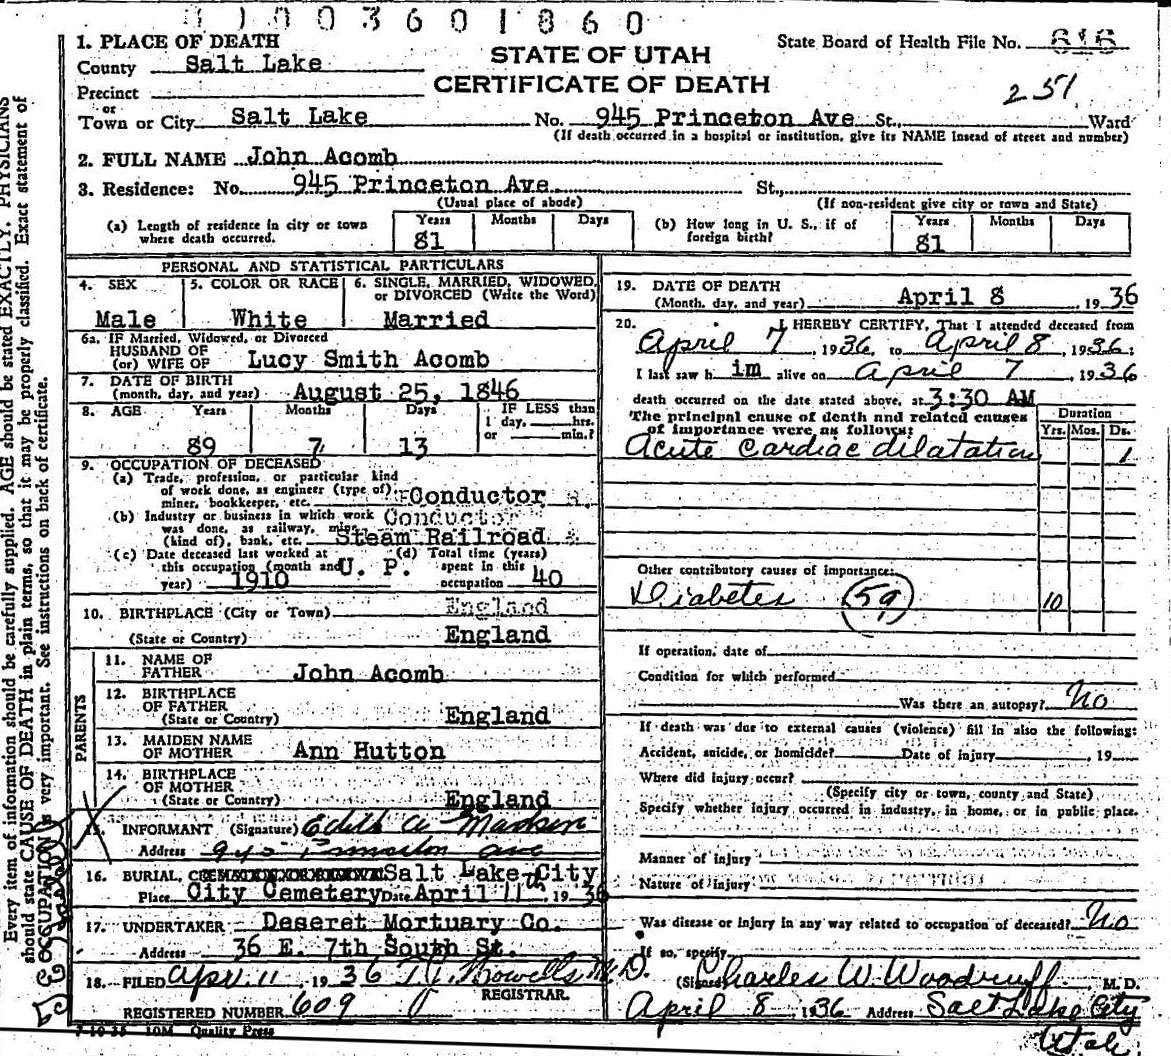 01003601860
1. PLACE OF DEATH
STATE OF UTAH
CERTIFICATE OF DEATH
State Board of Health File No. 616
251
County Salt Lake
Precinct
or
Town or City Salt Lake No. 945 Princeton Ave St., Ward
(If death occurred in a hospital or institution, give its NAME instead of street and number)
2. FULL NAME John Acomb
3. Residence: No. 945 Princeton Ave. St.,
(Usual place of abode) (If non-resident give city or town and State)
(a) Length of residence in city or town where death occurred. Years 81 Months Days
(b) How long in U. S., if of foreign birth? Years 81 Months Days
PERSONAL AND STATISTICAL PARTICULARS
4. SEX Male
5. COLOR OR RACE White
6. SINGLE, MARRIED, WIDOWED, or DIVORCED (Write the Word) Married
6a. IF Married, Widowed, or Divorced
HUSBAND OF
(or) WIFE OF Lucy Smith Acomb
7. DATE OF BIRTH
(month, day, and year) August 25, 1846
8. AGE Years 89 Months 7 Days 13 IF LESS than 1 day, hrs. or min.?
9. OCCUPATION OF DECEASED
(a) Trade, profession, or particular kind
of work done, as engineer (type of)
miner, bookkeeper, etc. Conductor
(b) Industry or business in which work Conductor
was done, as railway, mine
(kind of), bank, etc. Steam Railroad
(c) Date deceased last worked at this occupation (month and year) 1910 U. P.
(d) Total time (years) spent in this occupation 40
10. BIRTHPLACE (City or Town) England
(State or Country) England
PARENTS
11. NAME OF FATHER John Acomb
12. BIRTHPLACE OF FATHER
(State or Country) England
13. MAIDEN NAME OF MOTHER Ann Hutton
14. BIRTHPLACE OF MOTHER
(State or Country) England
15. INFORMANT (Signature) Edith A
Address 945 Princeton Ave
16. BURIAL, Salt Lake City
Place City Cemetery Date April 11th 1936
17. UNDERTAKER Deseret Mortuary Co.
Address 36 E. 7th South St.
18. FILED Apr. 11 1936 M.D.
REGISTRAR.
REGISTERED NUMBER 609
7-10-35 10M Quality Press
19. DATE OF DEATH
(Month, day, and year) April 8, 1936
20. I HEREBY CERTIFY, That I attended deceased from
April 7, 1936, to April 8, 1936:
I last saw him alive on April 7, 1936
death occurred on the date stated above, at 3:30 AM
The principal cause of death and related causes of importance were as follows: Duration Yrs. Mos. Ds.
Acute Cardiac dilatation 1
Other contributory causes of importance:
Diabetes (59) 10
If operation, date of
Condition for which performed
Was there an autopsy? No
If death was due to external causes (violence) fill in also the following:
Accident, suicide, or homicide? Date of injury , 19
Where did injury occur?
(Specify city or town, county and State)
Specify whether injury occurred in industry, in home, or in public place.
Manner of injury
Nature of injury
Was disease or injury in any way related to occupation of deceased? No
If so, specify
(Signed) Charles W. Woodruff M. D.
April 8 1936 Address Salt Lake City
Utah
Every item of information should be carefully supplied. AGE should be stated EXACTLY. PHYSICIANS
should state CAUSE OF DEATH in plain terms, so that it may be properly classified. Exact statement of
OCCUPATION is very important. See instructions on back of certificate.